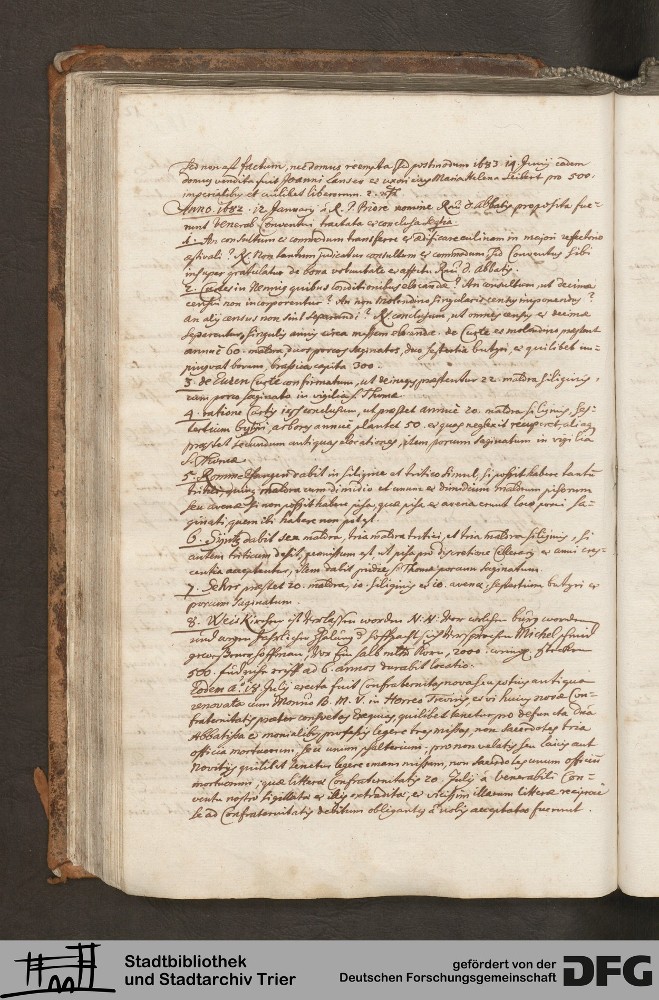 Sed non est factum, nec domus reempta, sed postmodum 1683. 19. Junij eadem
domus vendita fuit Joanni Lenser et uxori eius Maria Helena Seibert pro 500.
imperialibus et cuilibet liberorum. 2.
Anno 1682. 12. January a R. P. Priore nomine Rmi D. Abbatis proposita fue-
runt Venerab. Conventui tractata et conclusa
1. An consultum et commodum transferre et ædificare culinam in majori refectorio
æstivali? R. Non tantum judicatur consultum et commodum sed Conventus sibi
insuper gratulatur de bona voluntate et affectu Rmi D. Abbatis.
2. in Nennig quibus conditionibus elocanda? An consultum, ut decimæ
censui non incorporentur? An non Molendino singularis census imponendus?
An alij census non sint separandi? R. conclusum, ut omnes census et decimæ
separentur, singulis annis circa messem elocandæ. de Curte et molendino præstent
annuè 60. maldra, duos porcos saginatos, duo sestertia butyri, et quilibet
capita 300.
3. de Euren Curte confirmatum, ut deinceps præstentur 22. maldra siliginis,
cum porco saginato in vigilia S. Thomæ.
4. ratione Curtis conclusum, ut præstet annuè 20. maldra siliginis, ses-
tertium butyri, arbores annuè plantet 50. et quas neglexit recuperet, aliaq.
præstet secundum antiquas elocationes, item porcum saginatum in vigilia
S. Thomæ.
5. dabit in siligine et tritico simul, si possit habere tantum
tritici, quinq. maldra cum dimidio et annuè et dimidium maldrum pisorum
seu avenæ si non possit habere pisa, quæ pisa et avena erunt loco porci sa-
ginati quem ibi habere non potest.
6. dabit sex maldra, tria maldra tritici, et tria maldra siliginis, si
autem triticum desit, promissum est, ut pisa pro discretione Cellerarij et anni
acceptentur, item dabit pridie S. Thomæ porcum saginatum.
7. Sehr præstet 20. maldra, 10. siliginis et 10. avenæ, sestertium butyri et
porcum saginatum.
8. Weiskirchen ist verlassen worden N: N: vor welchen bürg worden
und Michel Schmid
Hoffman, vor fünf halb mltr Korn, 2000.
500. ad 6. annos durabit locatio.
Eodem Ao. 18. Julij erecta fuit Confraternitas nova seu potius antiqua
renovata cum Monrio B. M. V. in Horreo Treviris et vi huius novæ Con-
fraternitatis præter consuetas exequias, quilibet tenetur pro defuncta Dna
Abbatissa et monialibus professis legere tres missas, non sacerdotes tria
officia mortuorum, seu unum psalterium, pro non velatis seu laicis aut
Novitijs quilibet tenetur legere unam missam, non sacerdotes unum officium
mortuorum, quæ litteræ Confraternitatis 20. Julij a Venerabili Con-
ventu nostro sigillatæ et illis extraditæ, et vicissim illarum litteræ reciproce
se ad Confraternitatis debitum obligantes a nobis acceptatæ fuerunt.
Stadtbibliothek
und Stadtarchiv Trier
gefördert von der
Deutschen Forschungsgemeinschaft
DFG